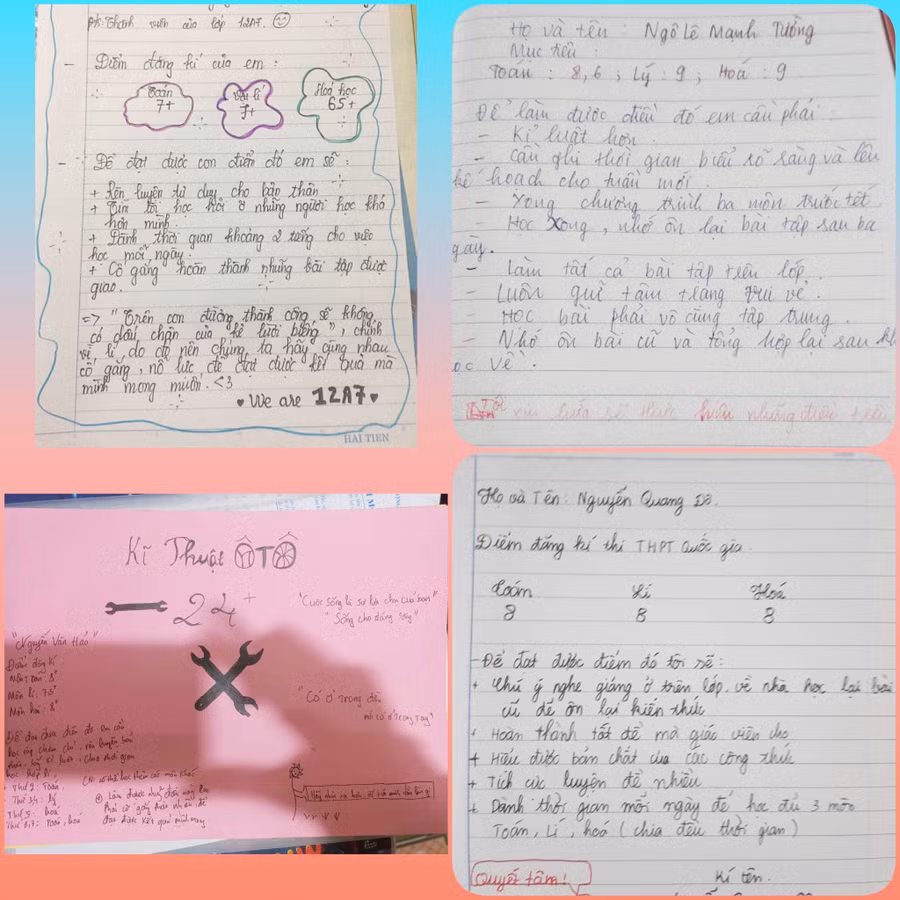 pk: Thành viên của lớp 12A7.
- Điểm đăng kí của em :
Toán 7+
Vật lí 7+
Hoá học 6.5+
- Để đạt được con điểm đó em sẽ :
+ Rèn luyện tư duy cho bản thân
+ Tìm tòi học hỏi ở những người học khá
hơn mình.
+ Dành thời gian khoảng 2 tiếng cho việc
học mỗi ngày.
+ Cố gắng hoàn thành những bài tập được
giao.
=> "Trên con đường thành công sẽ không
có dấu chân của kẻ lười biếng", chính
vì lí do đó nên chúng ta hãy cùng nhau
cố gắng, nỗ lực để đạt được kết quả mà
mình mong muốn. <3
♥ We are 12A7 ♥
HẢI TIẾN
Họ và tên : Ngô Lê Mạnh Tường
Mục tiêu :
Toán : 8,6 ; Lý : 9 ; Hoá : 9
Để làm được điều đó em cần phải :
- Kỉ luật hơn.
- Cần ghi thời gian biểu rõ ràng và lên
kế hoạch cho tuần mới.
- Xong chương trình ba môn trước tết
- Học xong, nhớ ôn lại bài tập sau ba
ngày.
- Làm tất cả bài tập trên lớp.
- Luôn giữ tâm trạng vui vẻ.
- Học bài phải vô cùng tập trung.
- Nhớ ôn bài cũ và tổng hợp lại sau khi
học về.
Tôi xin hứa sẽ thực hiện những điều trên
Kĩ Thuật ÔTÔ
24+
"Cuộc sống là sự lựa chọn của bạn"
"Sống cho đáng sống"
"Nguyễn Văn Hảo"
Điểm đăng kí :
Môn toán: 8+
Môn lí: 7,5+
Môn hoá: 8+
"Có ở trong đầu
mới có ở trong tay"
Thứ 2: Toán,
Thứ 3,4: Lý
Thứ 5: hoá
Thứ 6,7: Toán, hoá
Họ và Tên: Nguyễn Quang Dô.
Điểm đăng kí thi THPT Quốc gia.
Toán Lí Hoá
8 8 8
- Để đạt được điểm đó tôi sẽ :
+ Chú ý nghe giảng ở trên lớp, về nhà học lại bài
cũ để ôn lại kiến thức
+ Hoàn thành tất đề mà giáo viên cho
+ Hiểu được bản chất của các công thức
+ Tích cực luyện đề nhiều
+ Dành thời gian mỗi ngày để học đủ 3 môn
Toán, Lí, hoá (chia đều thời gian)
Quyết tâm!
Kí tên.